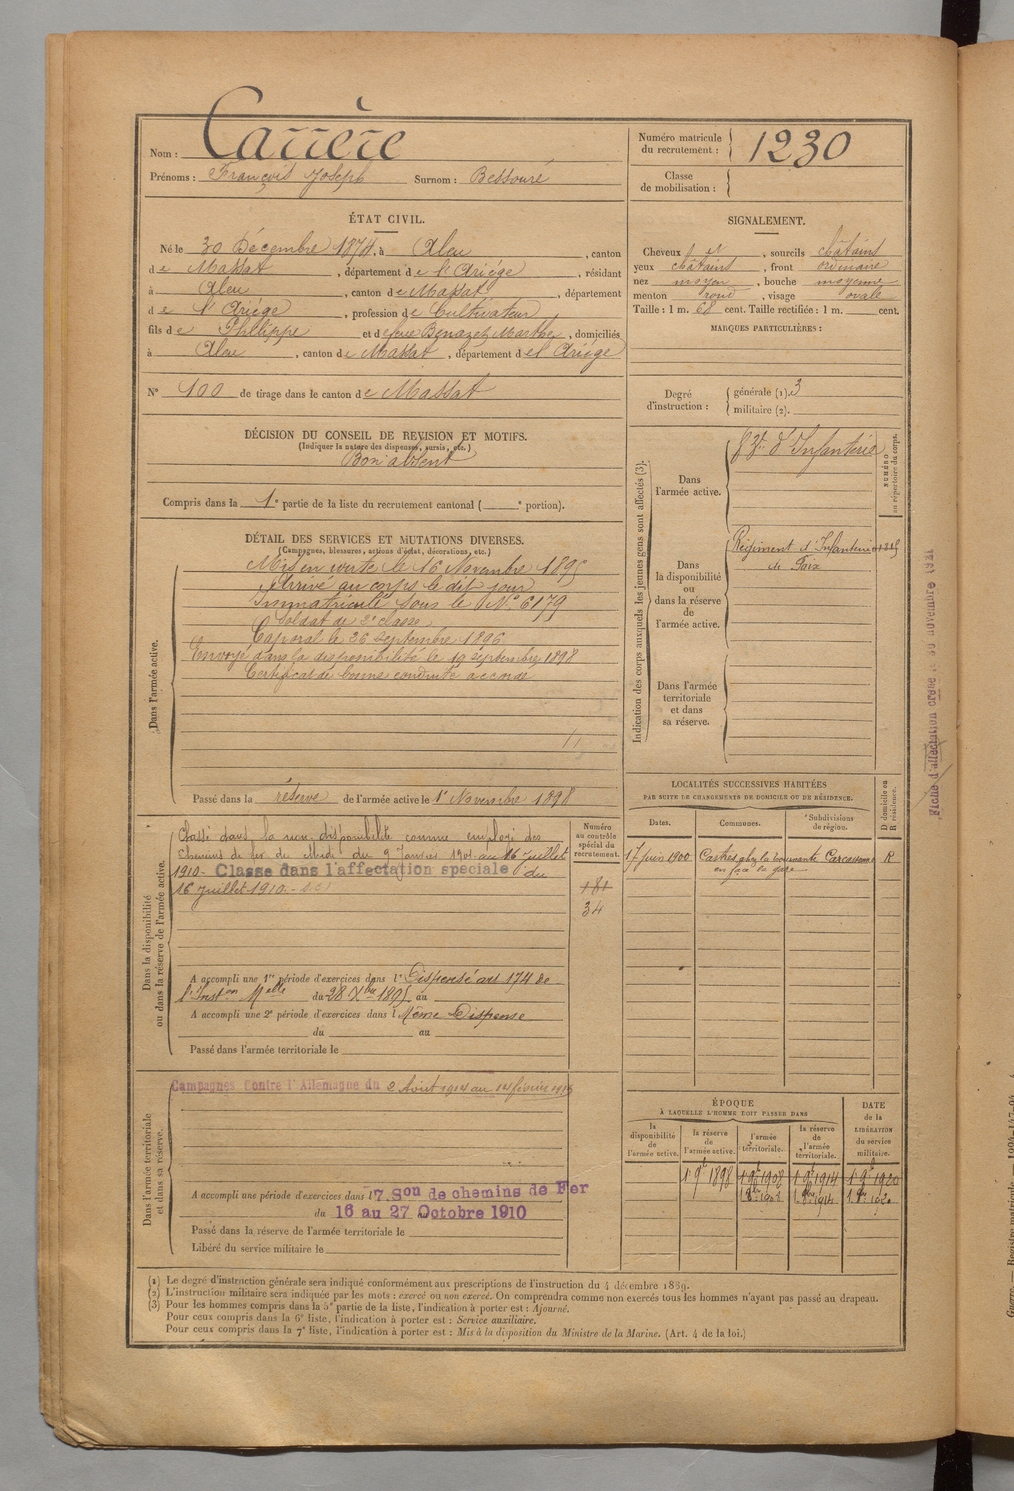 Nom : Carrère
Prénoms : François Joseph Surnom : Bessouré
Numéro matricule du recrutement : 1230
Classe de mobilisation :
ÉTAT CIVIL.
Né le 30 Décembre 1874, à Aleu, canton
de Massat, département de l'Ariége, résidant
à Aleu, canton de Massat, département
de l'Ariége, profession de Cultivateur
fils de Phillippe et de feue Benazet Marthe, domiciliés
à Aleu, canton de Massat, département de l'Ariége
N° 100 de tirage dans le canton de Massat
SIGNALEMENT.
Cheveux et, sourcils châtains
yeux châtains, front ordinaire
nez moyen, bouche moyenne
menton rond, visage ovale
Taille : 1 m. 68 cent. Taille rectifiée : 1 m. cent.
MARQUES PARTICULIÈRES :
Degré d'instruction : générale (1). 3
militaire (2).
DÉCISION DU CONSEIL DE REVISION ET MOTIFS.
(Indiquer la nature des dispenses, sursis, etc.)
Bon absent
Compris dans la 1e partie de la liste du recrutement cantonal ( e portion).
DÉTAIL DES SERVICES ET MUTATIONS DIVERSES.
(Campagnes, blessures, actions d'éclat, décorations, etc.)
Dans l'armée active.
Mis en route le 16 Novembre 1895
Arrivé au corps le dit jour
Immatriculé sous le N° 6179
Soldat de 2e classe
Caporal le 26 Septembre 1896
Envoyé dans la disponibilité le 19 septembre 1898
Certificat de bonne conduite accordé
Passé dans la réserve de l'armée active le 1er Novembre 1898
Indication des corps auxquels les jeunes gens sont affectés (3).
NUMÉRO au répertoire du corps.
Dans l'armée active.
d'Infanterie
Dans la disponibilité ou dans la réserve de l'armée active.
Régiment d'Infanterie
de Foix
Dans l'armée territoriale et dans sa réserve.
Fiche d'affectation créée le 30 novembre 1921
LOCALITÉS SUCCESSIVES HABITÉES
PAR SUITE DE CHANGEMENTS DE DOMICILE OU DE RÉSIDENCE.
Dates. Communes. Subdivisions de région. D domicile ou R résidence.
17 Juin 1900 Castres Carcassonne R
en face la gare
Dans la disponibilité ou dans la réserve de l'armée active.
Numéro au contrôle spécial du recrutement.
Classé dans la non disponibilité comme employé des
Chemins de fer du Midi du 9 Janvier 1901 au 16 Juillet
1910 - Classé dans l'affectation spéciale du
16 Juillet 1910.
181
34
A accompli une 1re période d'exercices dans l Dispensé art 174 de
l'Inston Melle du 28 Xbre 1895 au
A accompli une 2e période d'exercices dans l Même Dispense
du au
Passé dans l'armée territoriale le
Dans l'armée territoriale et dans sa réserve.
Campagnes Contre l'Allemagne du 2 Août 1914 au 14 février
A accompli une période d'exercices dans l 7. Son de chemins de Fer
du 16 au 27 Octobre 1910
Passé dans la réserve de l'armée territoriale le
Libéré du service militaire le
ÉPOQUE
À LAQUELLE L'HOMME DOIT PASSER DANS
DATE de la LIBÉRATION du service militaire.
la disponibilité de l'armée active. la réserve de l'armée active. l'armée territoriale. la réserve de l'armée territoriale.
1 9bre 1898 1 9bre 1908 1 9bre 1914 1 9bre 1920
(1) Le degré d'instruction générale sera indiqué conformément aux prescriptions de l'instruction du 4 décembre 1889.
(2) L'instruction militaire sera indiquée par les mots : exercé ou non exercé. On comprendra comme non exercés tous les hommes n'ayant pas passé au drapeau.
(3) Pour les hommes compris dans la 5e partie de la liste, l'indication à porter est : Ajourné.
Pour ceux compris dans la 6e liste, l'indication à porter est : Service auxiliaire.
Pour ceux compris dans la 7e liste, l'indication à porter est : Mis à la disposition du Ministre de la Marine. (Art. 4 de la loi.)